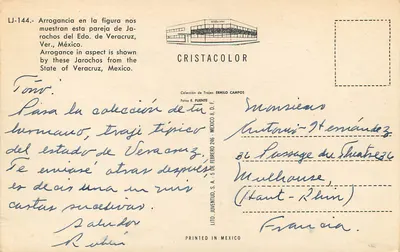 LJ-144.- Arrogancia en la figura nos
muestran esta pareja de Ja-
rochos del Edo. de Veracruz,
Ver., México.
Arrogance in aspect is shown
by these Jarochos from the
State of Veracruz, Mexico.
CRISTACOLOR
Colección de Trajes: ERNILO CAMPOS
Fotos R. PUENTE
LITO JUVENTUD, S. A. 5 DE FEBRERO 246 - MEXICO 8, D. F.
PRINTED IN MEXICO
Toño:
Para la colección de tu
hermano, traje típico
del estado de Veracruz
Te enviaré otras después
es decir una en mis
cartas sucesivas.
Salvador
Rubin
Monsieur
Antonio Hernández
36 Passage du Théatre 36
Mulhouse,
(Haut-Rhin)
Francia.